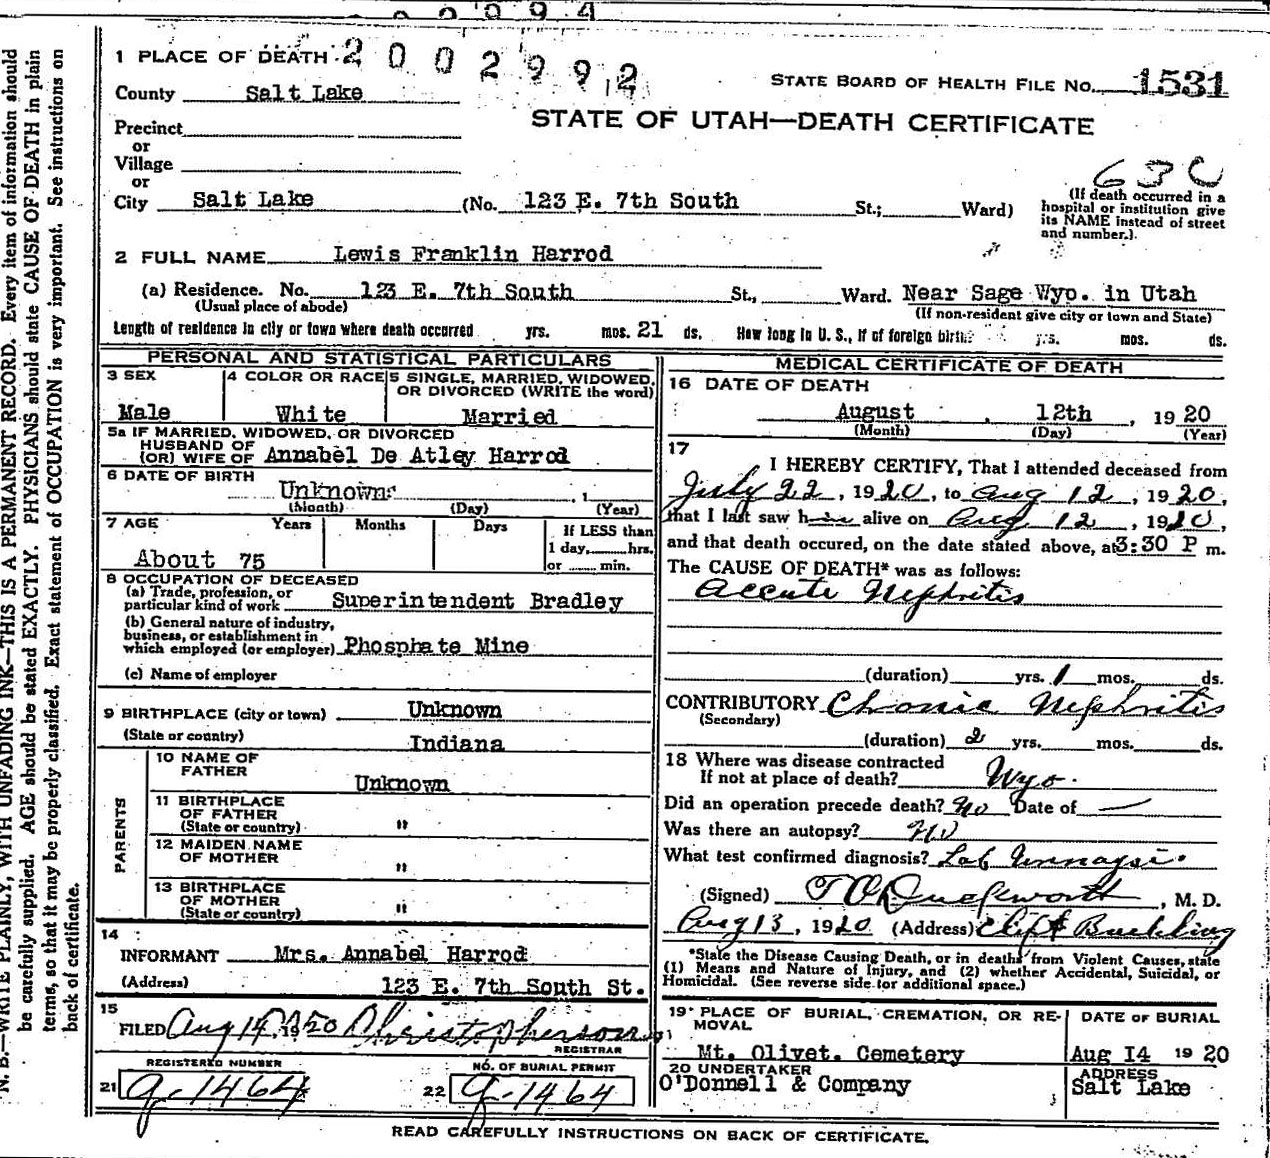 2994
1 PLACE OF DEATH 2002992
STATE BOARD OF HEALTH FILE NO. 1531
County Salt Lake
STATE OF UTAH—DEATH CERTIFICATE
Precinct
or
Village
or
City Salt Lake (No. 123 E. 7th South St.; Ward)
63C
(If death occurred in a
hospital or institution give
its NAME instead of street
and number.).
2 FULL NAME Lewis Franklin Harrod
(a) Residence. No. 123 E. 7th South St., Ward. Near Sage Wyo. in Utah
(Usual place of abode) (If non-resident give city or town and State)
Length of residence in city or town where death occurred yrs. mos. 21 ds. How long in U. S., if of foreign birth? yrs. mos. ds.
PERSONAL AND STATISTICAL PARTICULARS
3 SEX 4 COLOR OR RACE 5 SINGLE, MARRIED, WIDOWED,
OR DIVORCED (WRITE the word)
Male White Married
5a IF MARRIED, WIDOWED, OR DIVORCED
HUSBAND OF
(OR) WIFE OF Annabel De Atley Harrod
6 DATE OF BIRTH
Unknown , 1
(Month) (Day) (Year)
7 AGE Years Months Days If LESS than
1 day, hrs.
or min.
About 75
8 OCCUPATION OF DECEASED
(a) Trade, profession, or
particular kind of work Superintendent Bradley
(b) General nature of industry,
business, or establishment in
which employed (or employer) Phosphate Mine
(c) Name of employer
9 BIRTHPLACE (city or town) Unknown
(State or country) Indiana
PARENTS
10 NAME OF
FATHER
Unknown
11 BIRTHPLACE
OF FATHER
(State or country) "
12 MAIDEN NAME
OF MOTHER "
13 BIRTHPLACE
OF MOTHER
(State or country) "
14
INFORMANT Mrs. Annabel Harrod
(Address) 123 E. 7th South St.
15
FILED Aug 14 1920 Christopherson
REGISTRAR
REGISTERED NUMBER NO. OF BURIAL PERMIT
21 g-1464 22 g-1464
MEDICAL CERTIFICATE OF DEATH
16 DATE OF DEATH
August , 12th , 1920
(Month) (Day) (Year)
17
I HEREBY CERTIFY, That I attended deceased from
July 22, 1920, to Aug 12, 1920,
that I last saw him alive on Aug 12, 1920,
and that death occured, on the date stated above, at 3:30 P m.
The CAUSE OF DEATH* was as follows:
Accute Nephritis
(duration) yrs. 1 mos. ds.
CONTRIBUTORY Chronic Nephritis
(Secondary)
(duration) 2 yrs. mos. ds.
18 Where was disease contracted
If not at place of death? Wyo.
Did an operation precede death? No Date of —
Was there an autopsy? No
What test confirmed diagnosis? Lab
(Signed) T O Duckworth, M. D.
Aug 13, 1920 (Address) Clift Building
*State the Disease Causing Death, or in deaths from Violent Causes, state
(1) Means and Nature of Injury, and (2) whether Accidental, Suicidal, or
Homicidal. (See reverse side for additional space.)
19 PLACE OF BURIAL, CREMATION, OR RE-
MOVAL
DATE OF BURIAL
Mt. Olivet. Cemetery Aug 14 1920
20 UNDERTAKER ADDRESS
O'Donnell & Company Salt Lake
READ CAREFULLY INSTRUCTIONS ON BACK OF CERTIFICATE.
N. B.—WRITE PLAINLY, WITH UNFADING INK—THIS IS A PERMANENT RECORD. Every item of information should
be carefully supplied. AGE should be stated EXACTLY. PHYSICIANS should state CAUSE OF DEATH in plain
terms, so that it may be properly classified. Exact statement of OCCUPATION is very important. See instructions on
back of certificate.